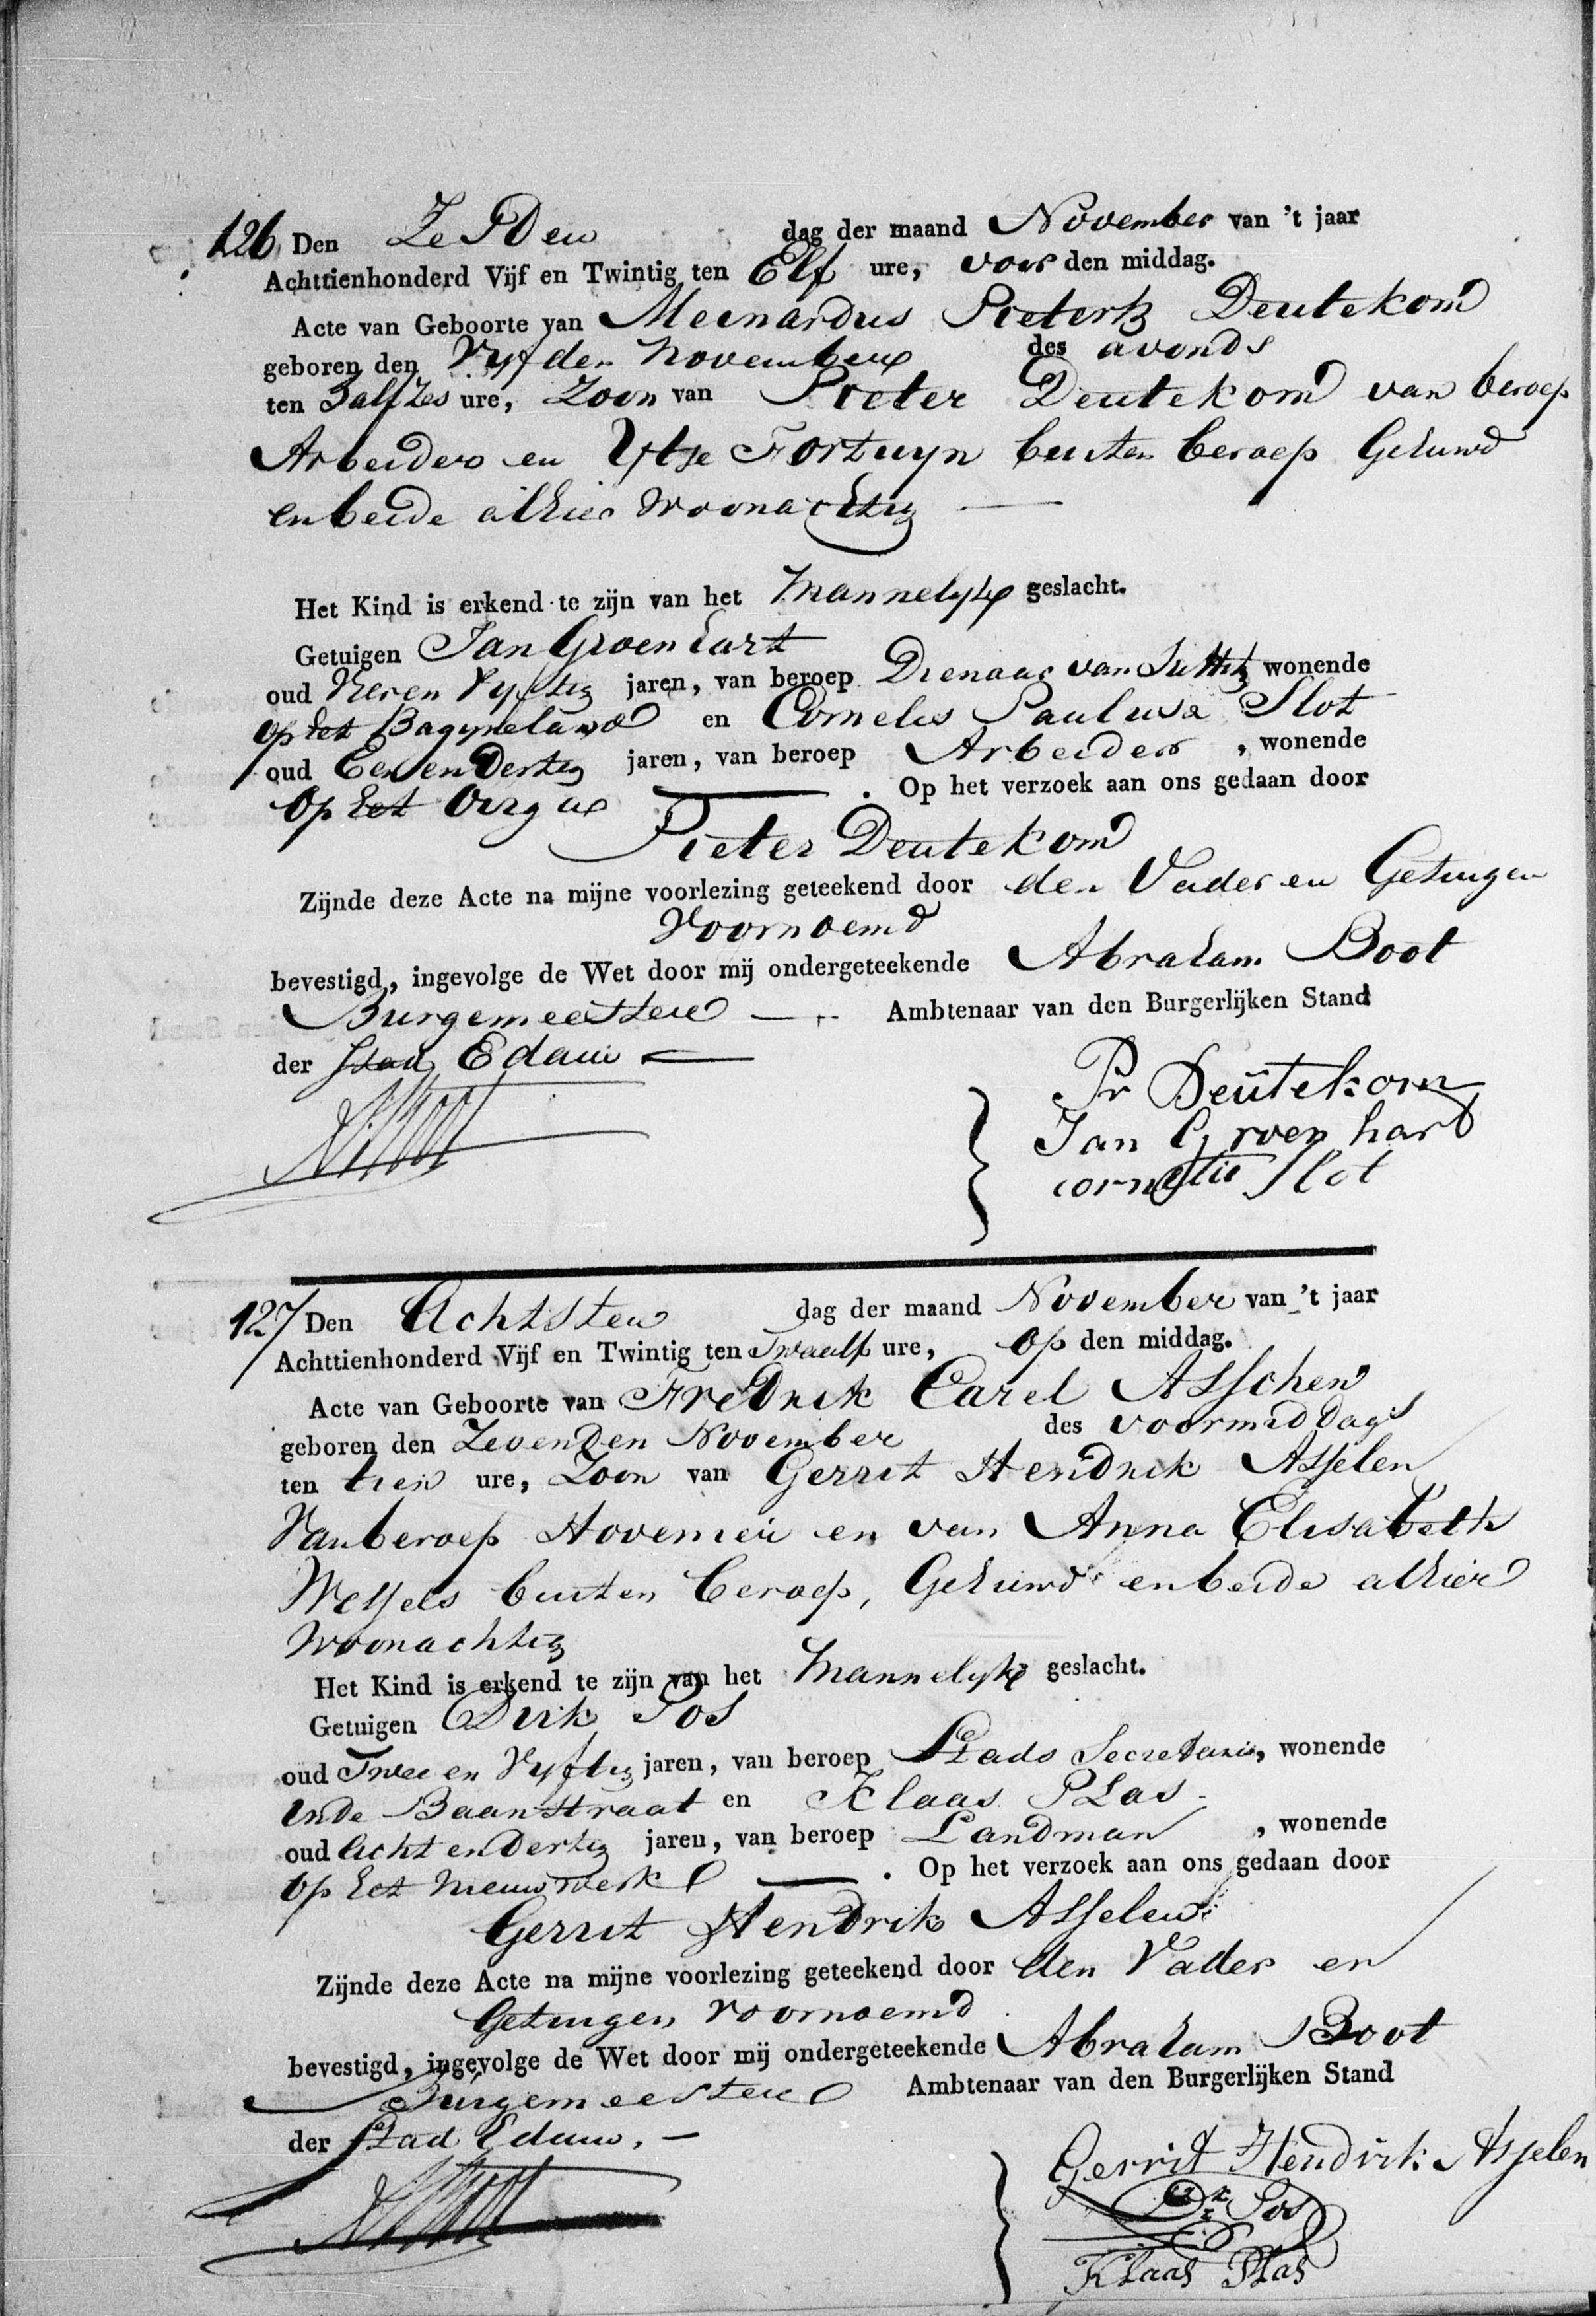 126 Den Zesden dag der maand November van 't jaar
Achttienhonderd Vijf en Twintig ten Elf ure, voor den middag.
Acte van Geboorte van Meinardus Pieterk Deutekom
geboren den Vyfden November des avonds
ten Half Zes ure, Zoon van Pieter Deutekom van beroep
Arbeider en Ytje Fortuyn buiten beroep Gehuwd
en beide alhier woonachtig
Het Kind is erkend te zijn van het Mannelyk geslacht.
Getuigen Jan Groenhart
oud Vier en Vyftig jaren, van beroep Dienaar van wonende
op het Bagyneland en Cornelis Paulusz Slot
oud Een en Dertig jaren, van beroep Arbeider, wonende
Op het . Op het verzoek aan ons gedaan door
Pieter Deutekom
Zijnde deze Acte na mijne voorlezing geteekend door den Vader en Getuigen
Voornoemd
bevestigd, ingevolge de Wet door mij ondergeteekende Abraham Boot
Burgemeester Ambtenaar van den Burgerlijken Stand
der Stad Edam
Pr Deutekom
Jan Groenhart
cornelis Slot
127 Den Achtsten dag der maand November van 't jaar
Achttienhonderd Vijf en Twintig ten Twaalf ure, Op den middag.
Acte van Geboorte van Fredrik Carel Asschen
geboren den Zevenden November des voormiddags
ten tien ure, Zoon van Gerrit Hendrik Asselen
Van beroep Hovenier en van Anna Elisabeth
Wessels buiten beroep, Gehuwd en beide alhier
Woonachtig
Het Kind is erkend te zijn van het Mannelyk geslacht.
Getuigen Dirk Pos
oud Twee en Vyftig jaren, van beroep Stads Secretaris, wonende
in de Baanstraat en Klaas Plas
oud Acht en Dertig jaren, van beroep Landman, wonende
Op het Nieuwwerk. Op het verzoek aan ons gedaan door
Gerrit Hendrik Asselen
Zijnde deze Acte na mijne voorlezing geteekend door den Vader en
Getuigen voornoemd
bevestigd, ingevolge de Wet door mij ondergeteekende Abraham Boot
Burgemeester Ambtenaar van den Burgerlijken Stand
der Stad Edam.
Gerrit Hendrik Asselen
Dk Pos
Klaas Plas